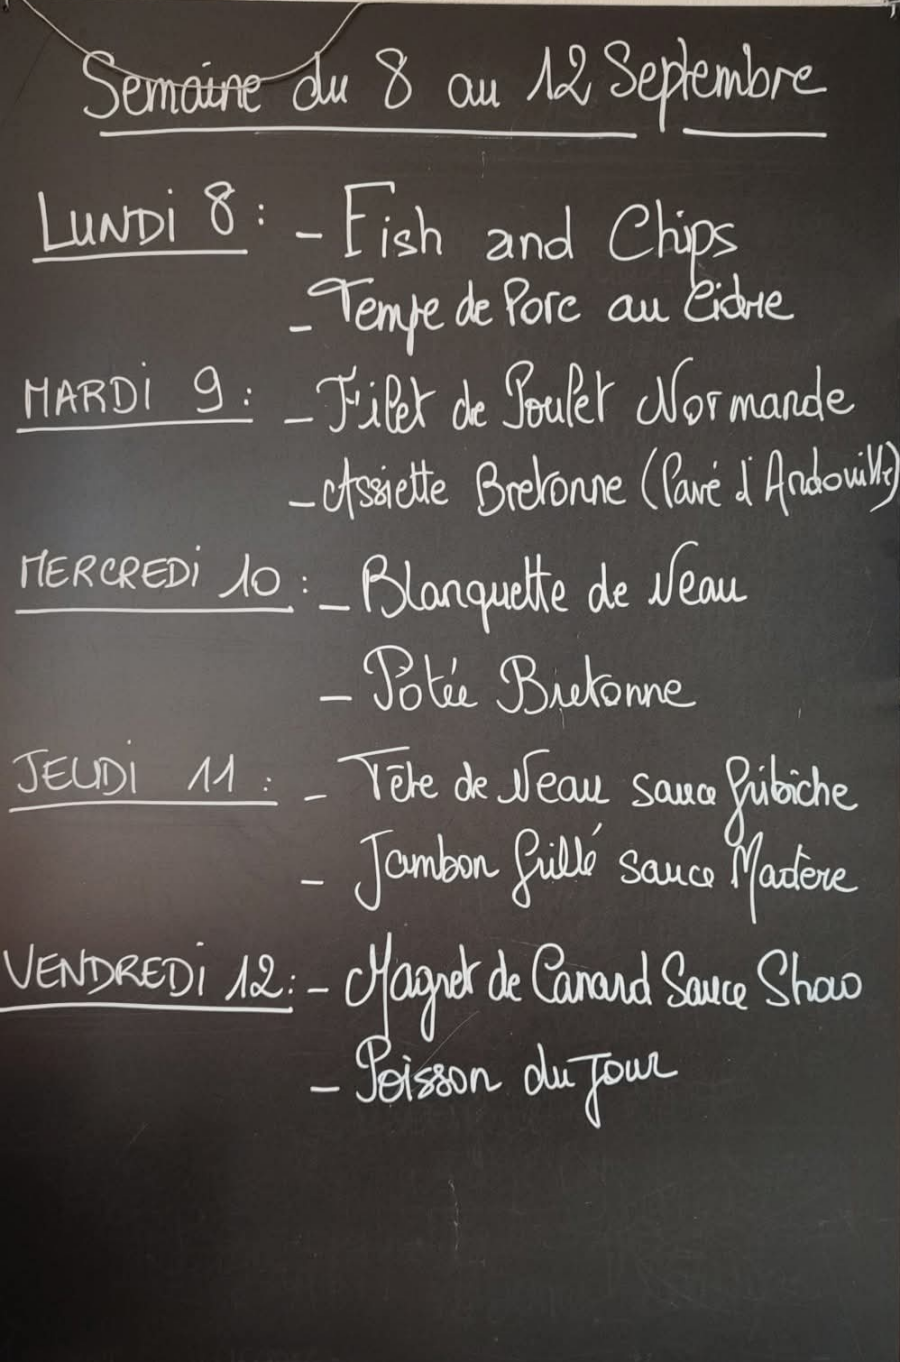 Semaine du 8 au 12 Septembre
LUNDI 8 : - Fish and Chips
- Tempe de Porc au Cidre
MARDI 9 : - Filet de Poulet Normande
- Assiette Bretonne (Pavé d'Andouille)
MERCREDI 10 : - Blanquette de Veau
- Potée Bretonne
JEUDI 11 : - Tête de Veau sauce Gribiche
- Jambon Grillé sauce Madère
VENDREDI 12 : - Magret de Canard Sauce
- Poisson du Jour